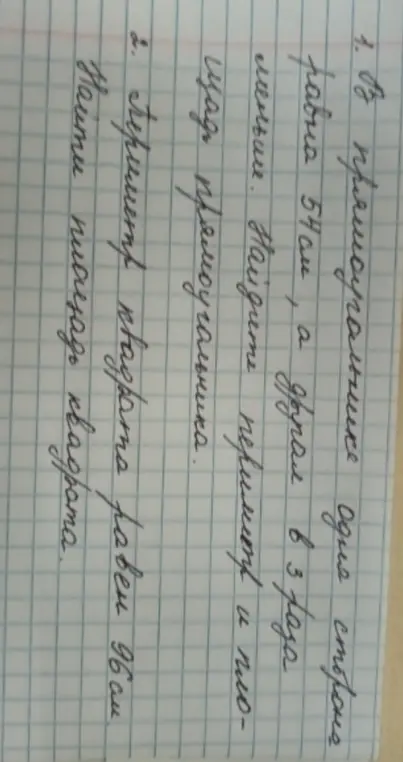 1. В прямоугольнике одна сторона
равна 54 см, а другая в 3 раза
меньше. Найдите периметр и пло-
щадь прямоугольника.
2. Периметр квадрата равен 96 см.
Найти площадь квадрата.